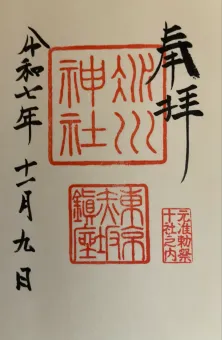 奉拝
氷川神社
元准勅祭
十社之内
東京
赤坂
鎮座
令和七年十一月九日